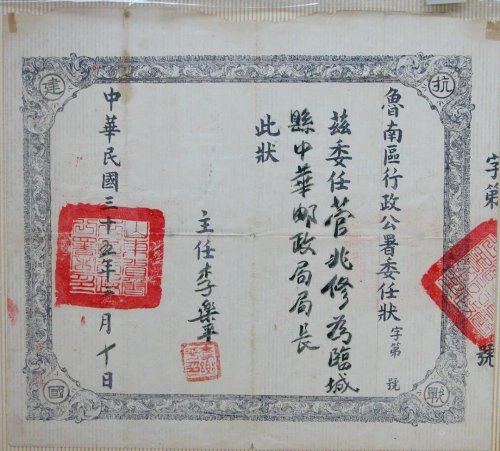 字第 號
抗 戰
魯南區行政公署委任狀 字第 號
茲委任菅兆修為臨城
縣中華郵政局局長
此狀
主任李樂平
中華民國三十五年 月十日
建 國